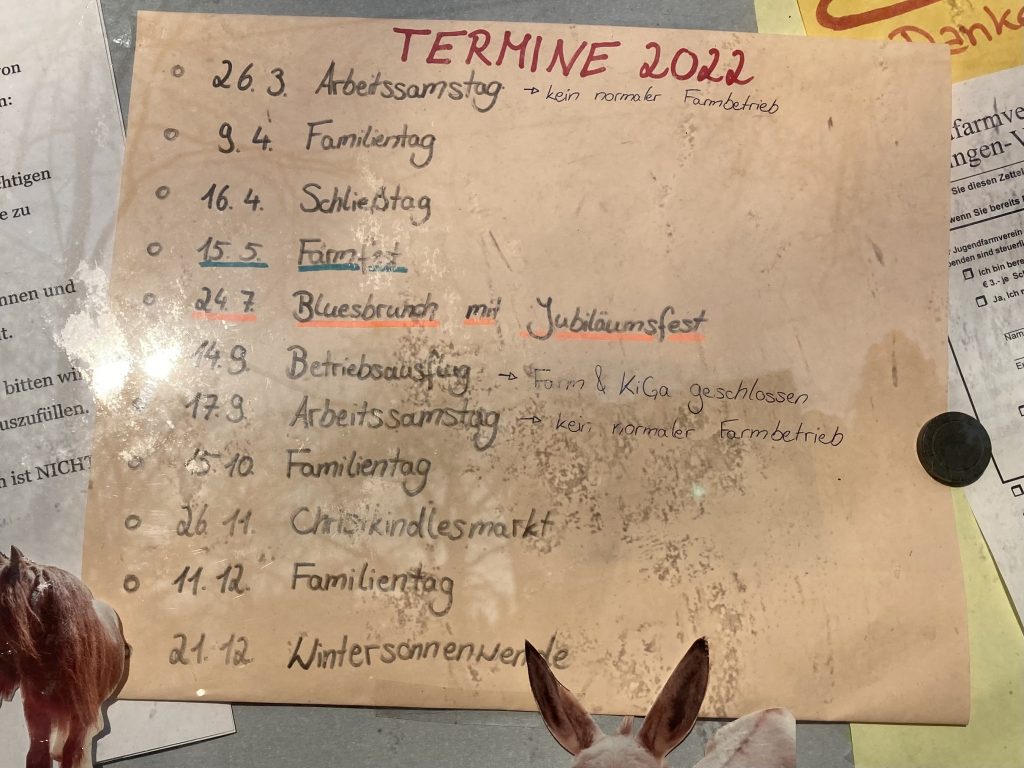 TERMINE 2022
26. 3. Arbeitssamstag → kein normaler Farmbetrieb
9. 4. Familientag
16. 4. Schließtag
15. 5. Farmfest
24. 7. Bluesbrunch mit Jubiläumsfest
14. 9. Betriebsausflug → Farm & KiGa geschlossen
17. 9. Arbeitssamstag → kein normaler Farmbetrieb
15. 10. Familientag
26. 11. Christkindlesmarkt
11. 12. Familientag
21. 12. Wintersonnenwende
von
n:
chtigen
e zu
nnen und
t.
bitten wir
uszufüllen.
n ist NICHT
Danke
farmve
ngen-V
Sie diesen Zettel
wenn Sie bereits
Jugendfarmverein
enden sind steuerli
Ich bin bere
€ 3.- je Sc
Ja, ich
Nam